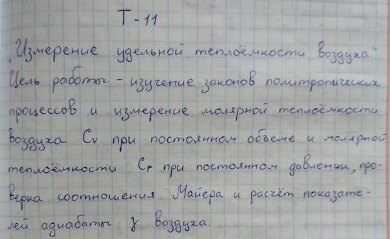 Т-11
"Измерение удельной теплоёмкости воздуха"
Цель работы - изучение законов политропических
процессов и измерение молярной теплоёмкости
воздуха Cv при постоянном объеме и молярной
теплоёмкости Cp при постоянном давлении, про-
верка соотношения Майера и расчёт показате-
лей адиабаты γ воздуха.